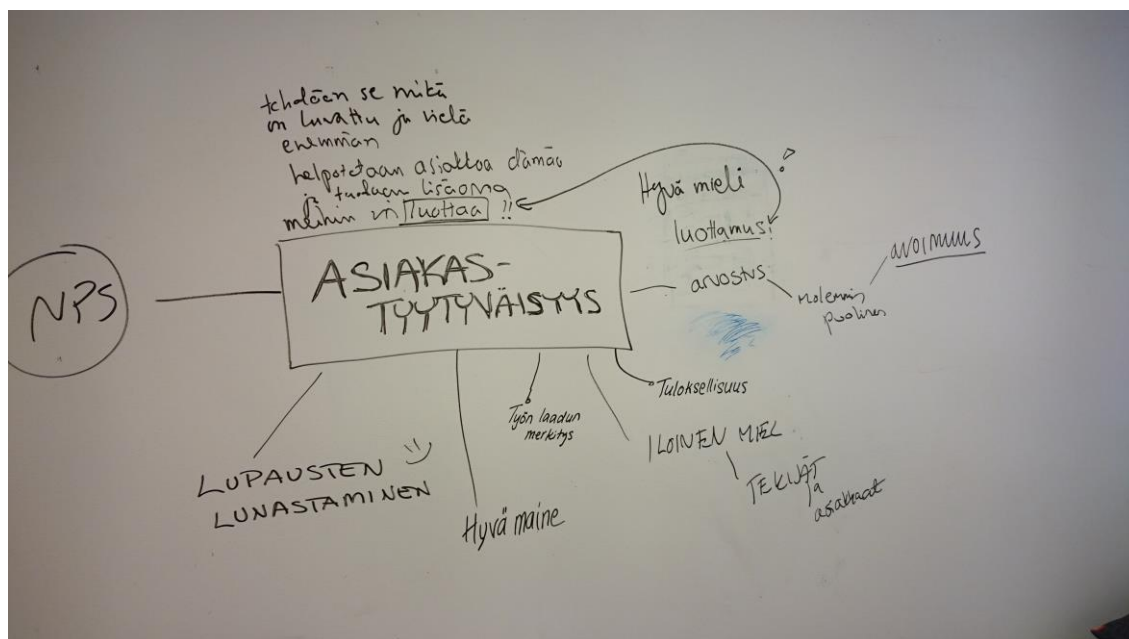 tehdään se mitä
on luvattu ja vielä
enemmän
helpotetaan asiakkaa elämää
ja tuodaan lisäarvoa
meihin voi luottaa !!
Hyvä mieli
luottamus!
NPS
ASIAKAS-
TYYTYVÄISYYS
arvostus
molemmin
puolinen
AVOIMUUS
Tuloksellisuus
Työn laadun
merkitys
ILOINEN MIEL
TEKIJÄT
ja
asiakkaat
LUPAUSTEN
LUNASTAMINEN
Hyvä maine